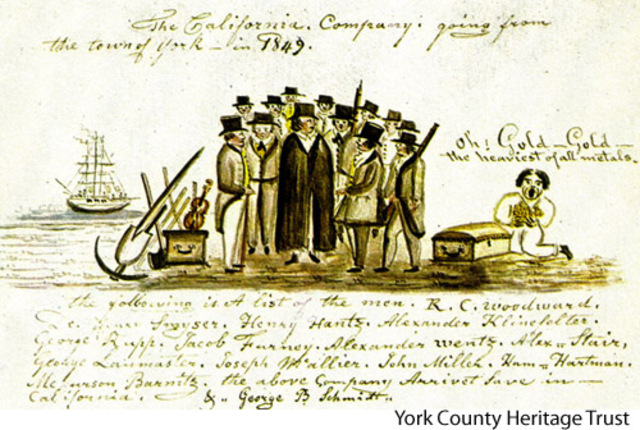 The California. Company: going from
the town of York — in 1849.
Oh! Gold — Gold —
the heaviest of all metals.
the following is A list of the men. R. C. Woodward.
Smyser. Henry Hantz. Alexander Klinefelter.
George Rupp. Jacob Furney. Alexander wentz. Alex= Stair,
George Laumaster. Joseph M'allier. John Miller. Ham= Hartman.
Barnitz. the above Company Arrivet Save in —
California. &.. George B Schmitt..
York County Heritage Trust